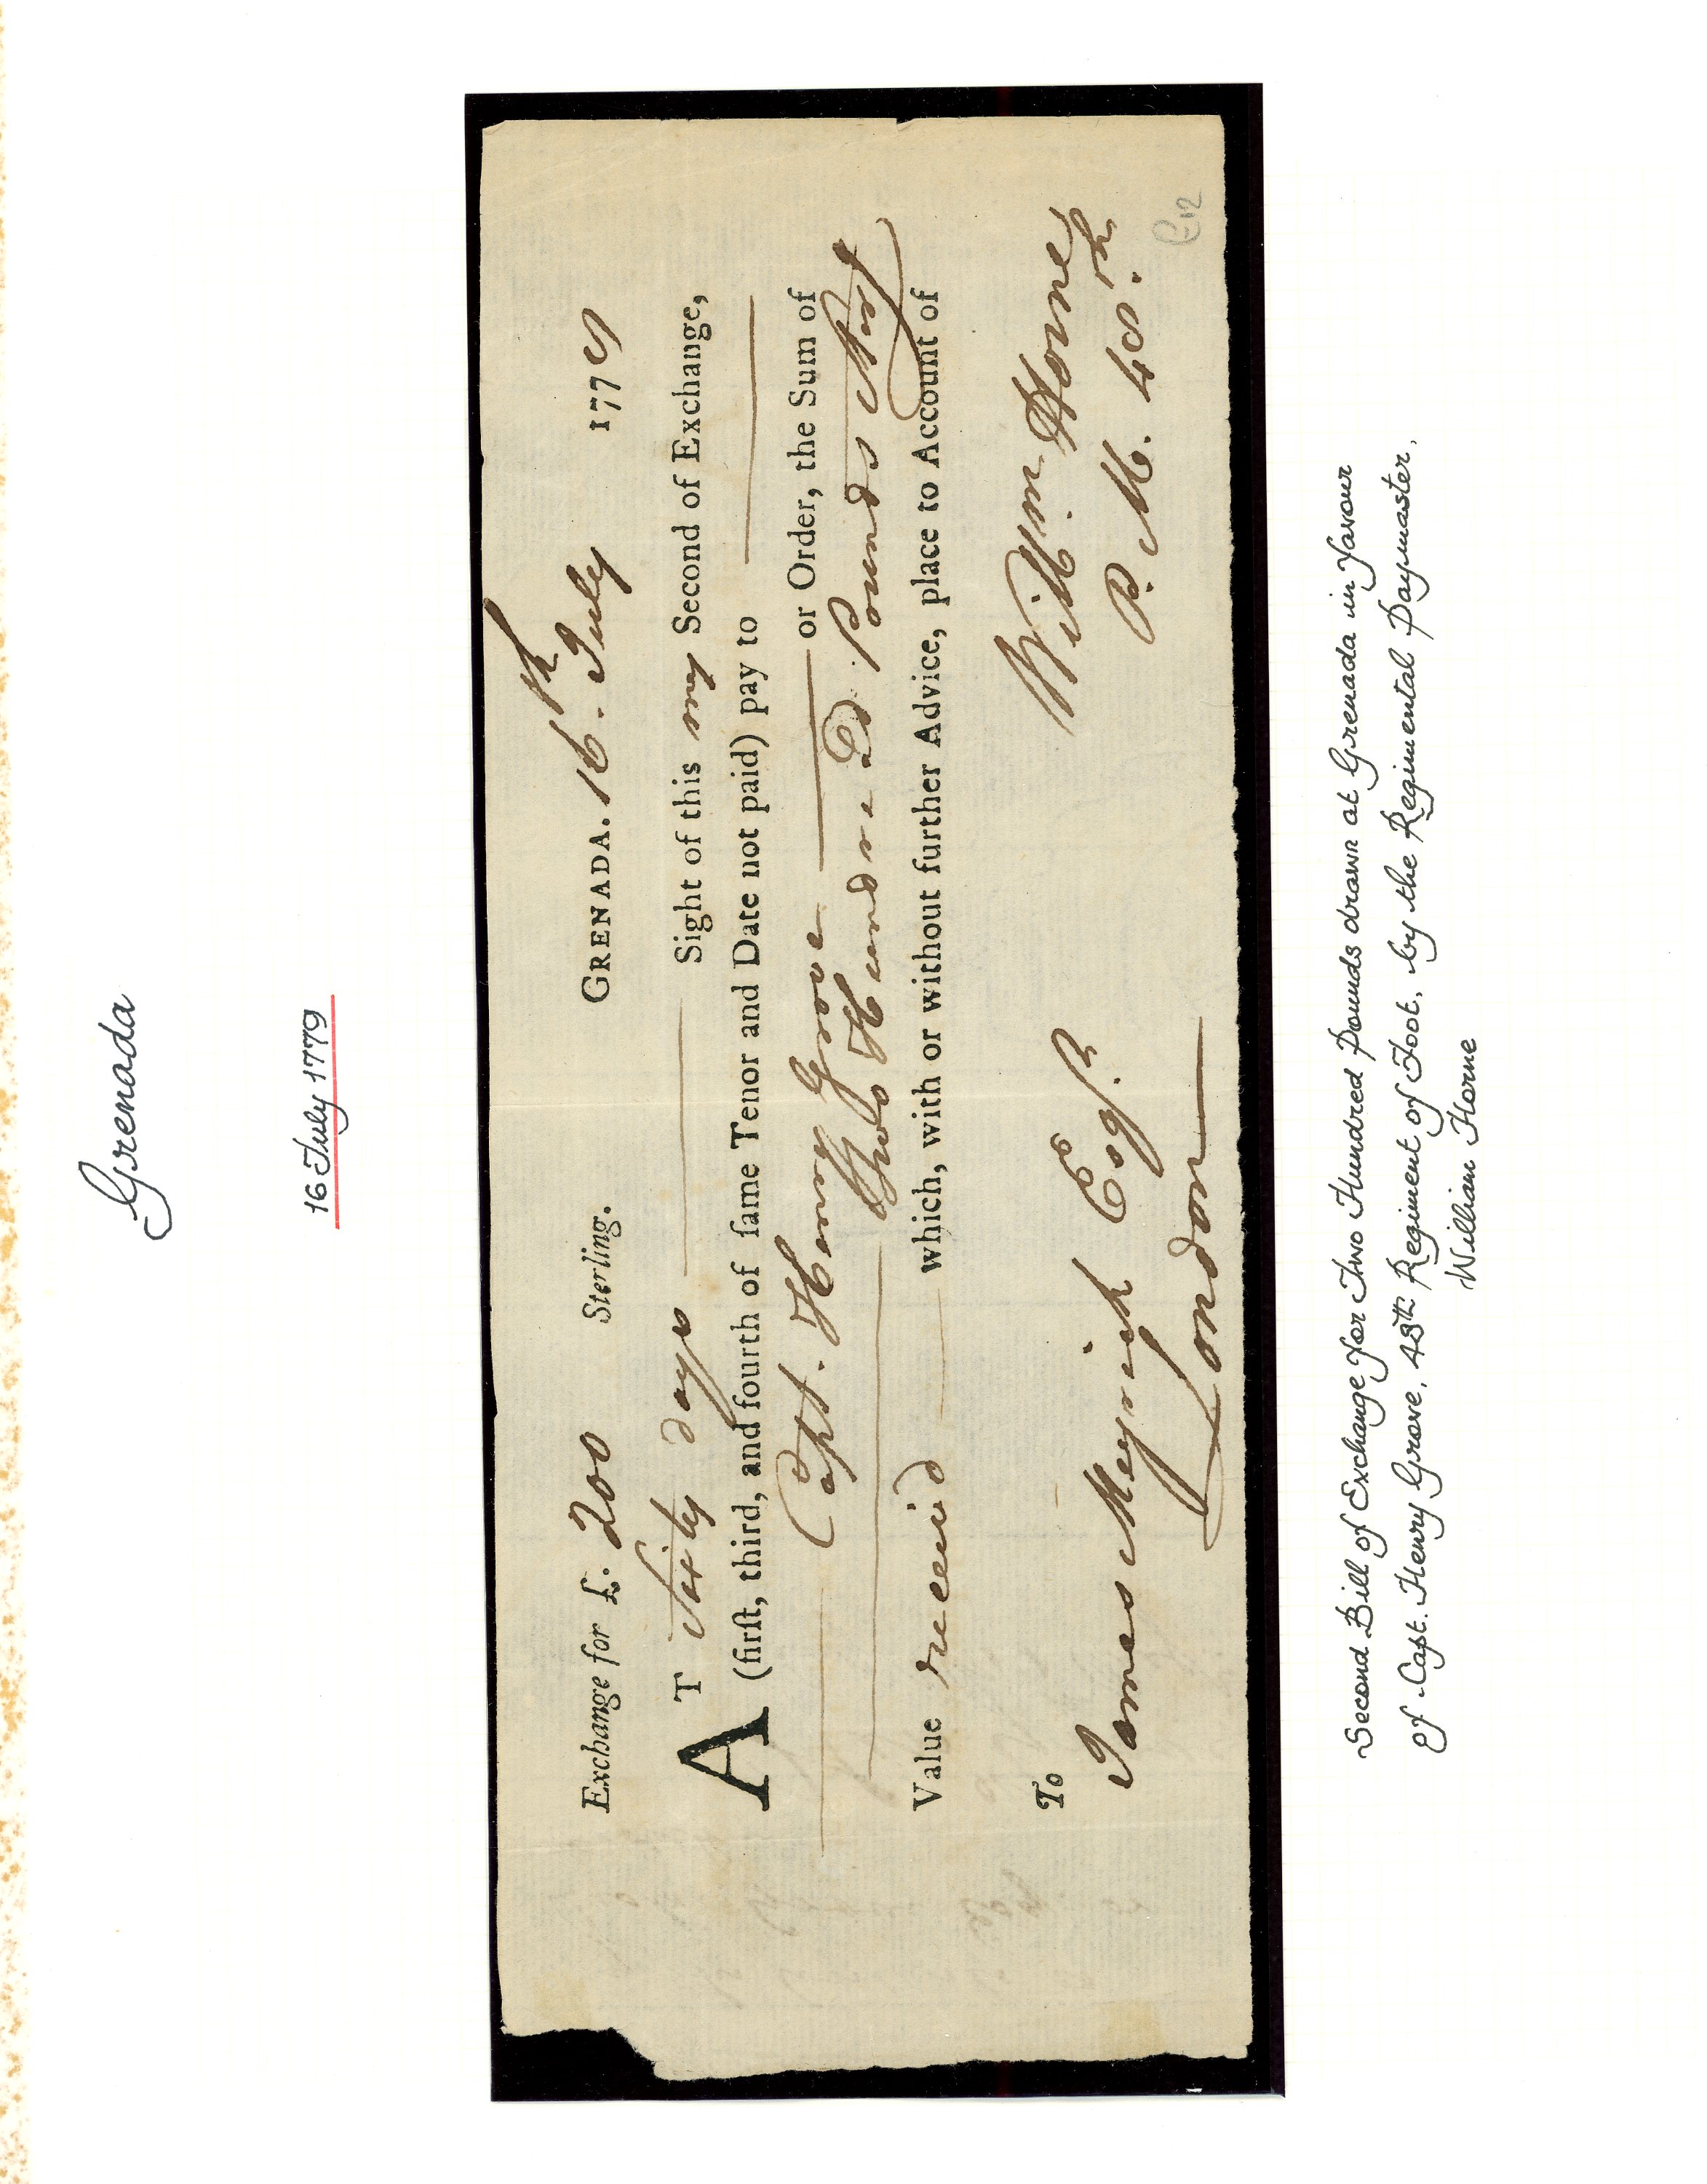 Grenada
16 July 1779
Exchange for £. 200 Sterling. GRENADA. 16th July 1779
AT Sixty days Sight of this my Second of Exchange,
(firſt, third, and fourth of ſame Tenor and Date not paid) pay to
Capt. Henry Grove or Order, the Sum of
Two Hundred Pounds Sterg
Value received which, with or without further Advice, place to Account of
To
Willm. Horne
James Meyrick Esqr.
P. M. 48th.
London
Second Bill of Exchange for Two Hundred Pounds drawn at Grenada in favour
of Capt. Henry Grove, 48th Regiment of Foot, by the Regimental Paymaster,
William Horne